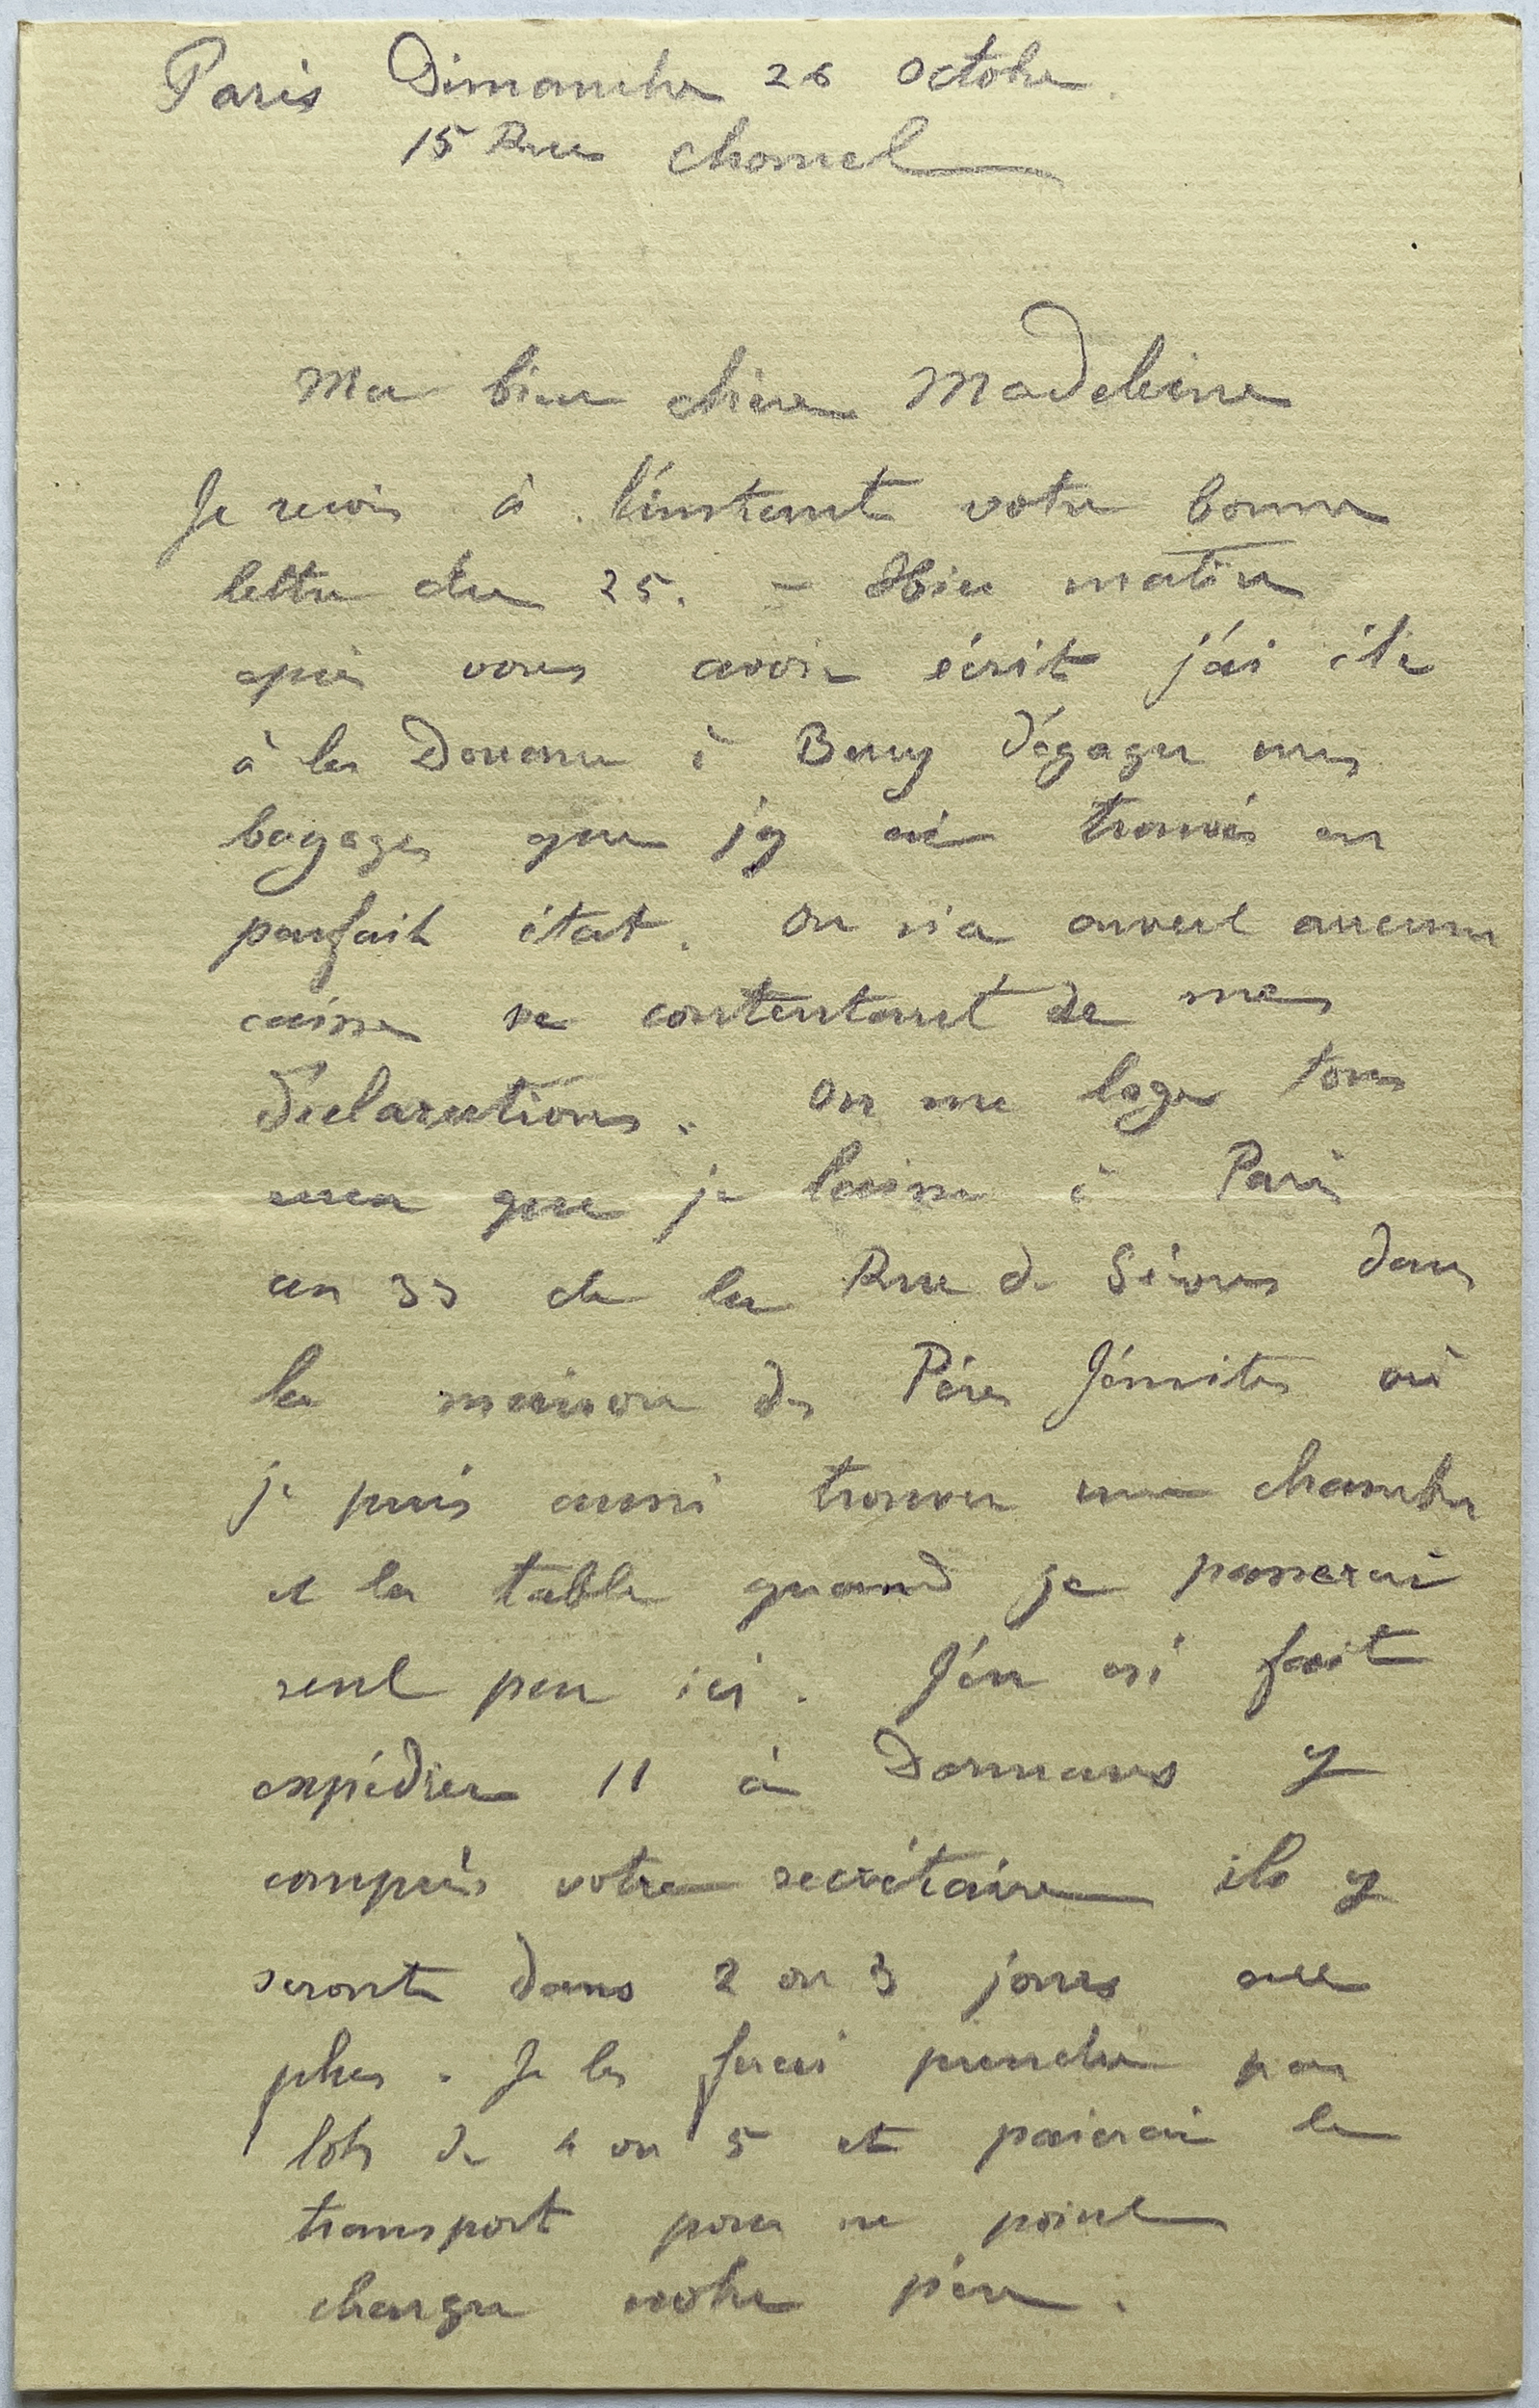 Paris Dimanche 26 octobre
15 Rue Chomel
Ma bien chère Madeleine
Je reçois à l'instant votre bonne
lettre du 25. - Hier matin
après vous avoir écrit j'ai été
à la Douane à Bercy dégager mes
bagages que j'y ai trouvés en
parfait état. On n'a ouvert aucune
caisse se contentant de mes
déclarations. On me loge tous
ceux que je laisse à Paris
au 33 de la Rue de Sèvres dans
la maison des Pères Jésuites où
je puis aussi trouver une chambre
et la table quand je passerai
seul par ici. J'en ai fait
expédier 11 à Dormans y
compris votre secrétaire ils y
seront dans 2 ou 3 jours au
plus. Je les ferai prendre par
lots de 4 ou 5 et paierai le
transport pour ne point
charger votre père.